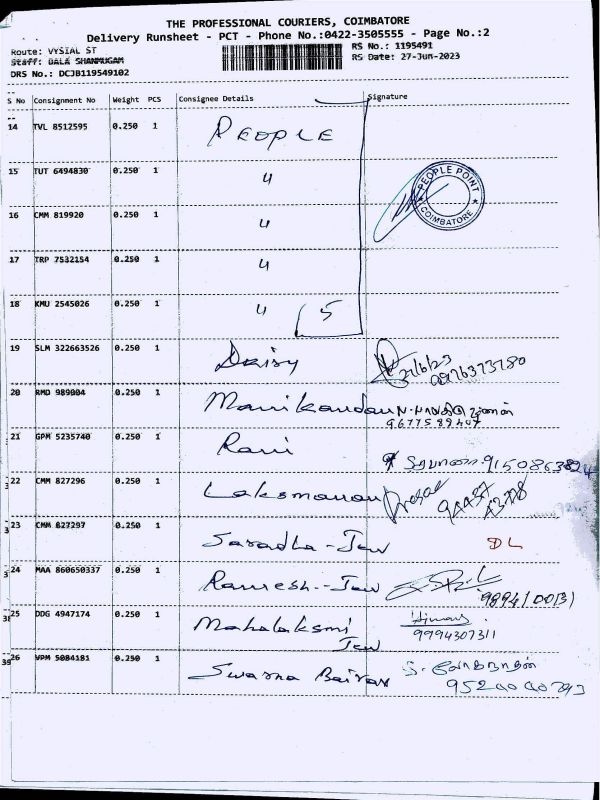 THE PROFESSIONAL COURIERS, COIMBATORE
Delivery Runsheet - PCT - Phone No.:0422-3505555 - Page No.:2
Route: VYSIAL ST
RS No.: 1195491
Staff: BALA SHANMUGAM
RS Date: 27-Jun-2023
DRS No.: DCJB119549102
S No Consignment No Weight PCS Consignee Details Signature
14 TVL 8512595 0.250 1 PEOPLE
15 TUT 6494830 0.250 1 "
PEOPLE POINT
COIMBATORE
16 CMM 819920 0.250 1 "
17 TRP 7532154 0.250 1 "
18 KMU 2545026 0.250 1 " 5
19 SLM 322663526 0.250 1 Daisy 27/6/23
20 RMD 989004 0.250 1 Manikandan
9677589407
21 GPM 5235740 0.250 1 Rani 9150863824
22 CMM 827296 0.250 1 Laksmanan
23 CMM 827297 0.250 1 Saradha - Jew DL
24 MAA 860650337 0.250 1 Ramesh - Jew
25 DDG 4947174 0.250 1 Mahalaksmi Jew
9994307311
26 VPM 5084181 0.250 1 Swarna Bairav